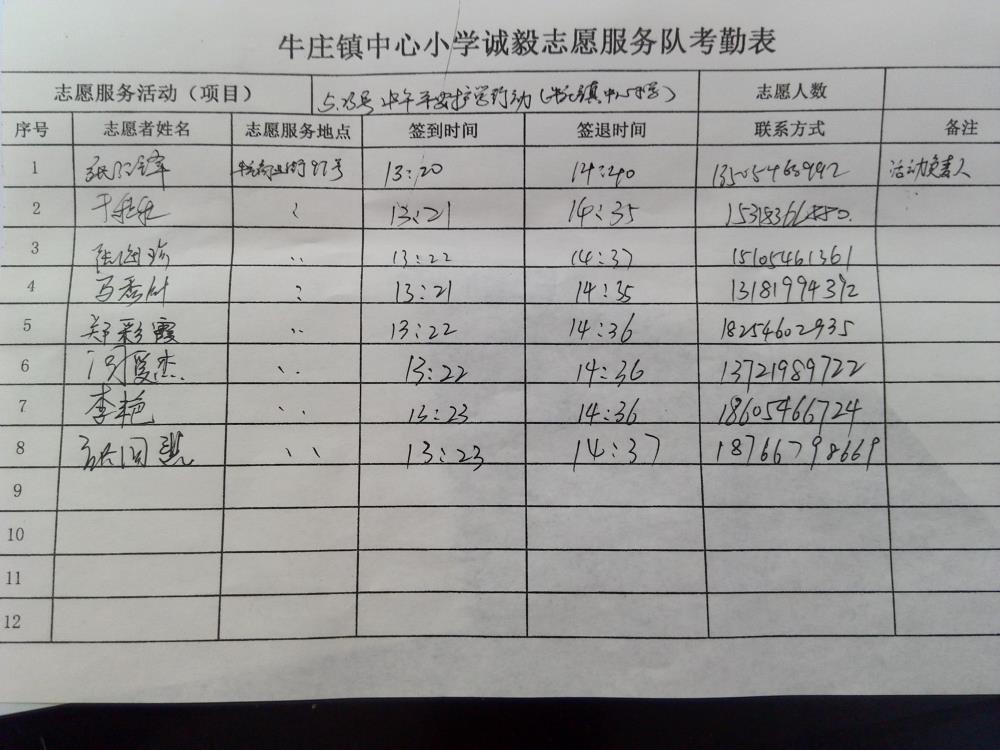 牛庄镇中心小学诚毅志愿服务队考勤表
志愿服务活动（项目） 5.23号中午平安护学行动（牛庄镇中心小学） 志愿人数
序号 志愿者姓名 志愿服务地点 签到时间 签退时间 联系方式 备注
1 商业街97号 13:20 14:40 13505463992 活动负责人
2 13:21 14:35
3 陈海珍 〃 13:22 14:37 15105461361
4 马秀仙 〃 13:21 14:35 13181994392
5 郑彩霞 〃 13:22 14:36 18254602935
6 闫夏杰 〃 13:22 14:36 13721989722
7 李艳 〃 13:23 14:36 18605466724
8 〃 13:23 14:37 18766798669
9
10
11
12